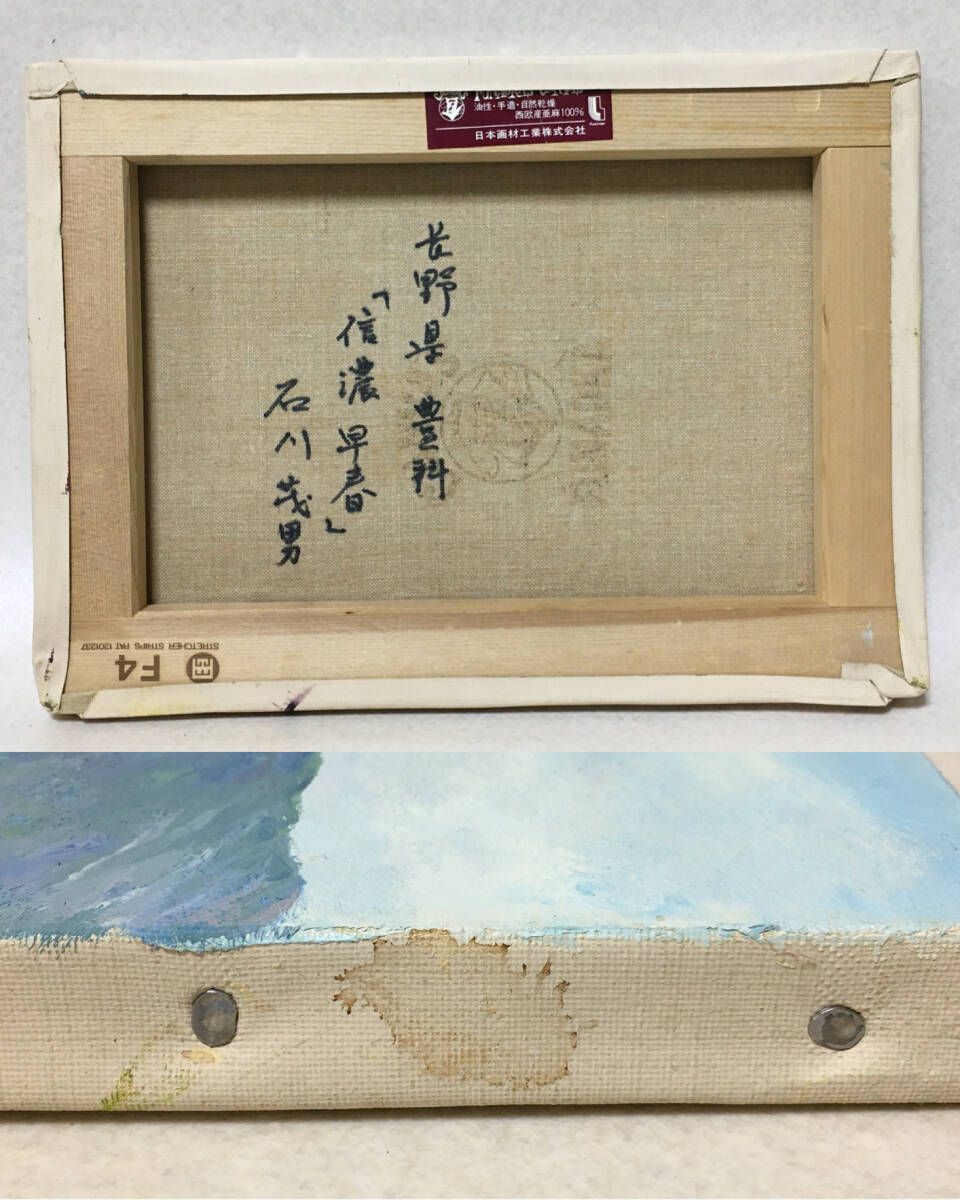 油性・手造・自然乾燥
西欧産亜麻100%
日本画材工業株式会社
長野県 豊科
「信濃 早春」
石川茂男
STRETCHER STRIPS PAT 1201237
F4